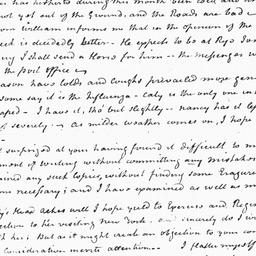 has hitherto during this month been cold and
not yet out of the Ground, and the Roads are bad
William informs me that in the opinion of the
is decidedly better - He expects to be at Rye
I shall send a Horse for him - the messenger
the Post office
have colds and coughs prevailed more gen
some say it is the Influenza - Caty is the only one in
- I have it, tho' but slightly - Nancy has it
severely - as milder weather comes on, I hope
surprised at your having found it difficult to
of writing without committing any mistakes
any such copies, without finding some Erasures
necessary; and I have examined as well as m
Head Aches will I hope yield to Exercise and Regi
to her visiting New York, and sincerely do I
But as it might create an objection to your
consideration merits attention - I flatter myself